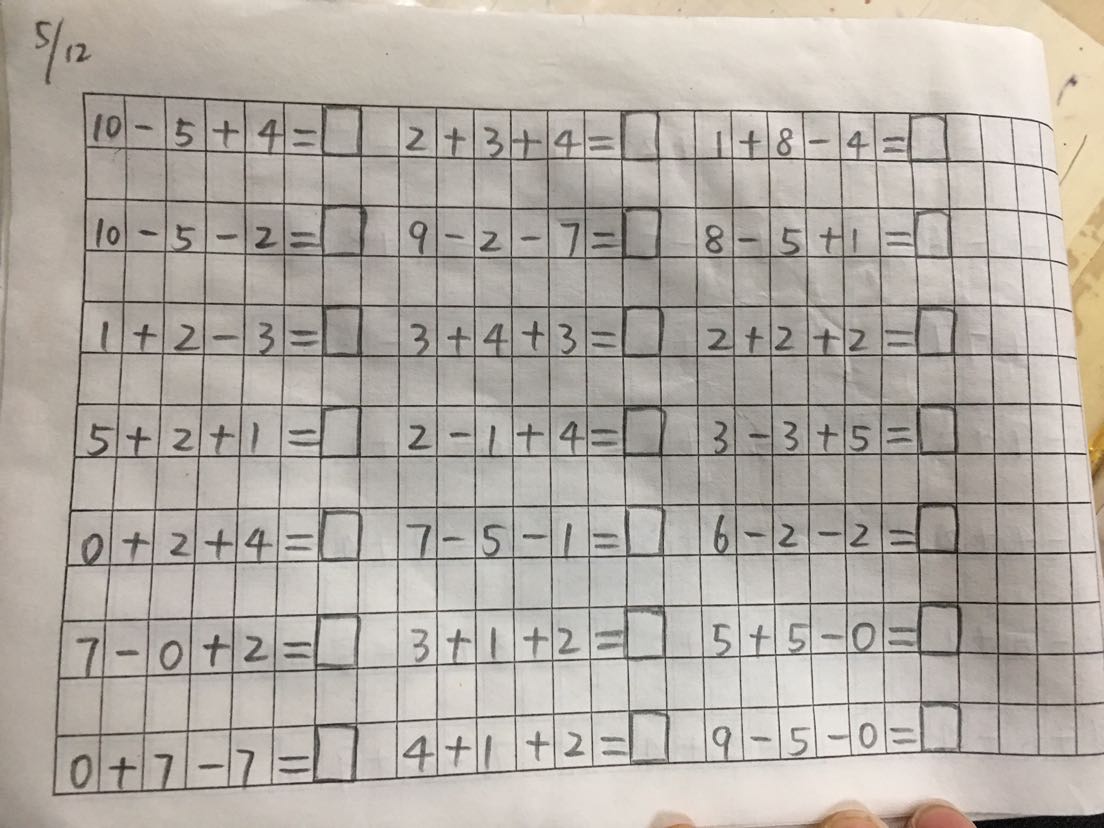 5/12
10-5+4=□ 2+3+4=□ 1+8-4=□
10-5-2=□ 9-2-7=□ 8-5+1=□
1+2-3=□ 3+4+3=□ 2+2+2=□
5+2+1=□ 2-1+4=□ 3-3+5=□
0+2+4=□ 7-5-1=□ 6-2-2=□
7-0+2=□ 3+1+2=□ 5+5-0=□
0+7-7=□ 4+1+2=□ 9-5-0=□